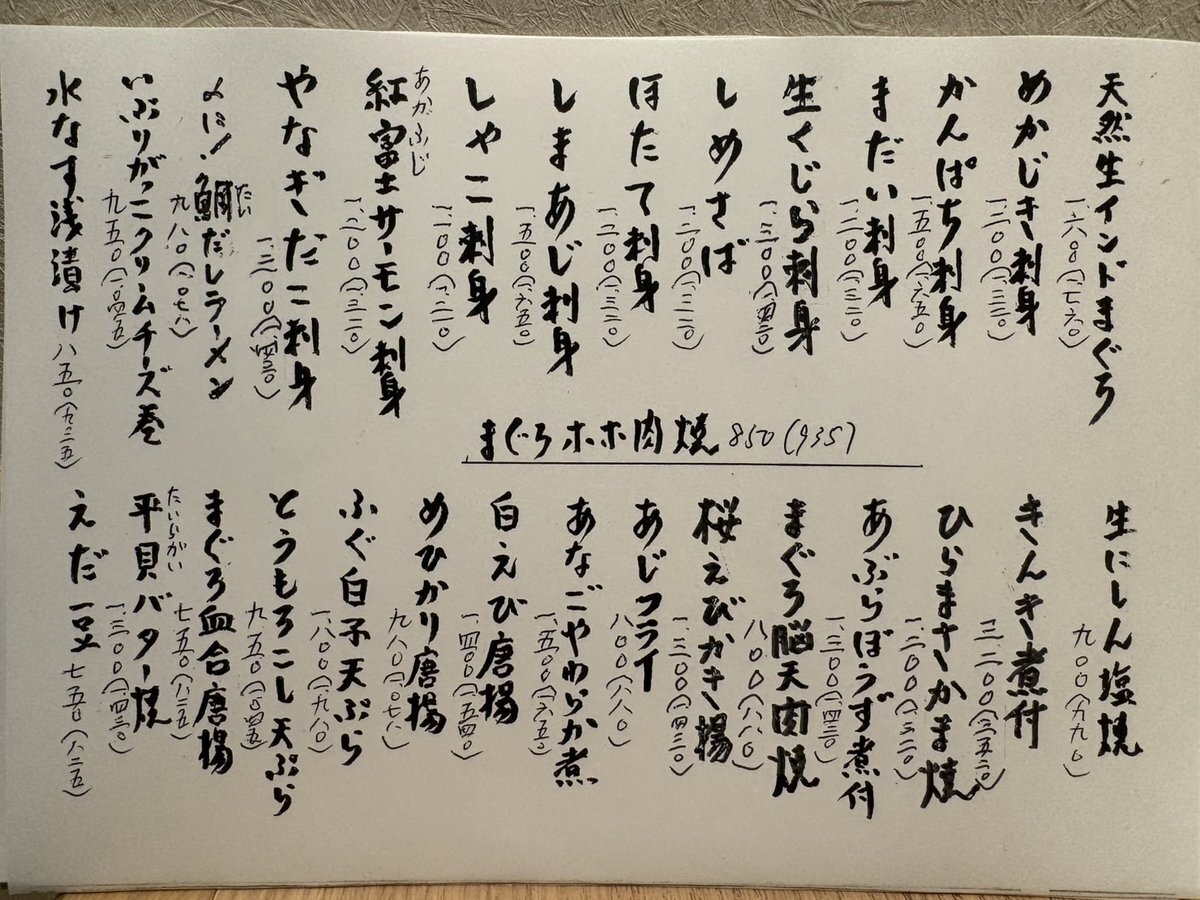 天然生インドまぐろ 一、六〇〇(一、七六〇)
めかじき刺身 一、二〇〇(一、三二〇)
かんぱち刺身 一、五〇〇(一、六五〇)
まだい刺身 一、二〇〇(一、三二〇)
生くじら刺身 一、三〇〇(一、四三〇)
しめさば 一、二〇〇(一、三二〇)
ほたて刺身 一、二〇〇(一、三二〇)
しまあじ刺身 一、五〇〇(一、六五〇)
しゃこ刺身 一、一〇〇(一、二一〇)
紅富士サーモン刺身 一、二〇〇(一、三二〇)
あかふじ
やなぎだこ刺身 一、三〇〇(一、四三〇)
〆に!鯛だしラーメン 九八〇(一、〇七八)
たい
いぶりがっこクリームチーズ巻 九五〇(一、〇四五)
水なす浅漬け 八五〇(九三五)
まぐろホホ肉焼 850(935)
生にしん塩焼 九〇〇(九九〇)
きんき煮付 三、二〇〇(三、五二〇)
ひらまさかま焼 一、二〇〇(一、三二〇)
あぶらぼうず煮付 一、三〇〇(一、四三〇)
まぐろ脳天肉焼 八〇〇(八八〇)
桜えびかき揚 一、三〇〇(一、四三〇)
あじフライ 八〇〇(八八〇)
あなごやわらか煮 一、五〇〇(一、六五〇)
白えび唐揚 一、四〇〇(一、五四〇)
めひかり唐揚 九八〇(一、〇七八)
ふぐ白子天ぷら 一、八〇〇(一、九八〇)
とうもろこし天ぷら 九五〇(一、〇四五)
まぐろ血合唐揚 七五〇(八二五)
平貝バター焼 一、三〇〇(一、四三〇)
たいらがい
えだ豆 七五〇(八二五)